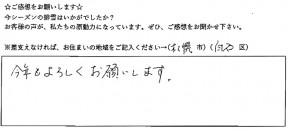 ☆ご感想をお願いします☆
今シーズンの除雪はいかがでしたか?
お客様の声が、私たちの原動力になっています。ぜひ、ご感想をお聞かせ下さい。
※差支えなければ、お住まいの地域をご記入ください→(札幌 市)(白石 区)
今年もよろしくお願いします。